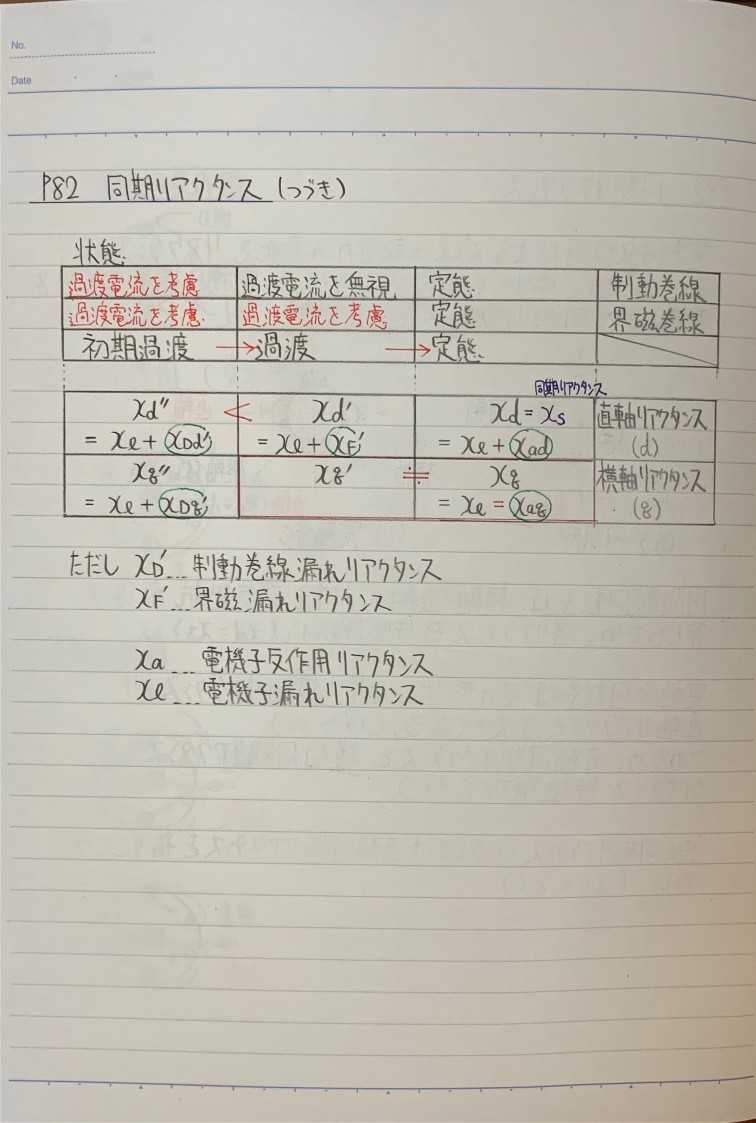 No.
Date
P82 同期リアクタンス(つづき)
状態
過渡電流を考慮 過渡電流を無視 定態 制動巻線
過渡電流を考慮 過渡電流を考慮 定態 界磁巻線
初期過渡 → 過渡 → 定態
同期リアクタンス
xd″ < xd′ xd = xs 直軸リアクタンス
= xl + xDd′ = xl + xF′ = xl + xad (d)
xq″ xq′ ≒ xq 横軸リアクタンス
= xl + xDq′ = xl = xaq (q)
ただし xD′… 制動巻線漏れリアクタンス
xF′… 界磁漏れリアクタンス
xa … 電機子反作用リアクタンス
xl … 電機子漏れリアクタンス